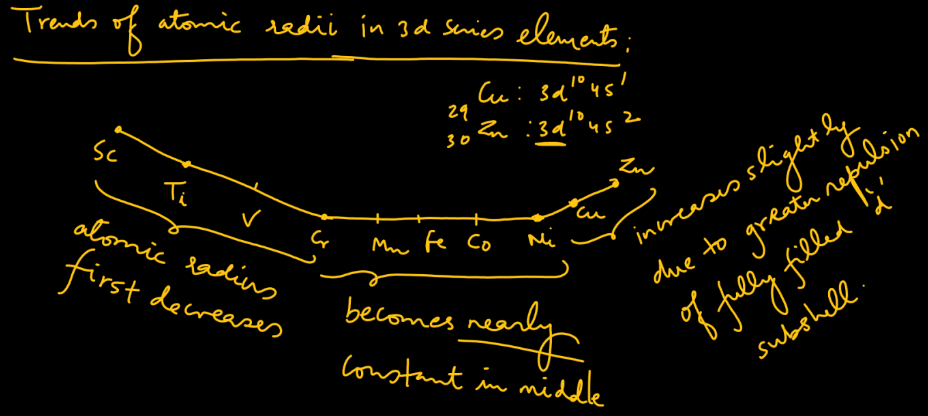 Trends of atomic radii in 3d series elements:
29 Cu: 3d¹⁰4s¹
30 Zn: 3d¹⁰4s²
Sc
Ti
V
Cr
Mn
Fe
Co
Ni
Cu
Zn
atomic radius
first decreases
becomes nearly
constant in middle
increases slightly
due to greater repulsion
of fully filled 'd'
subshell.